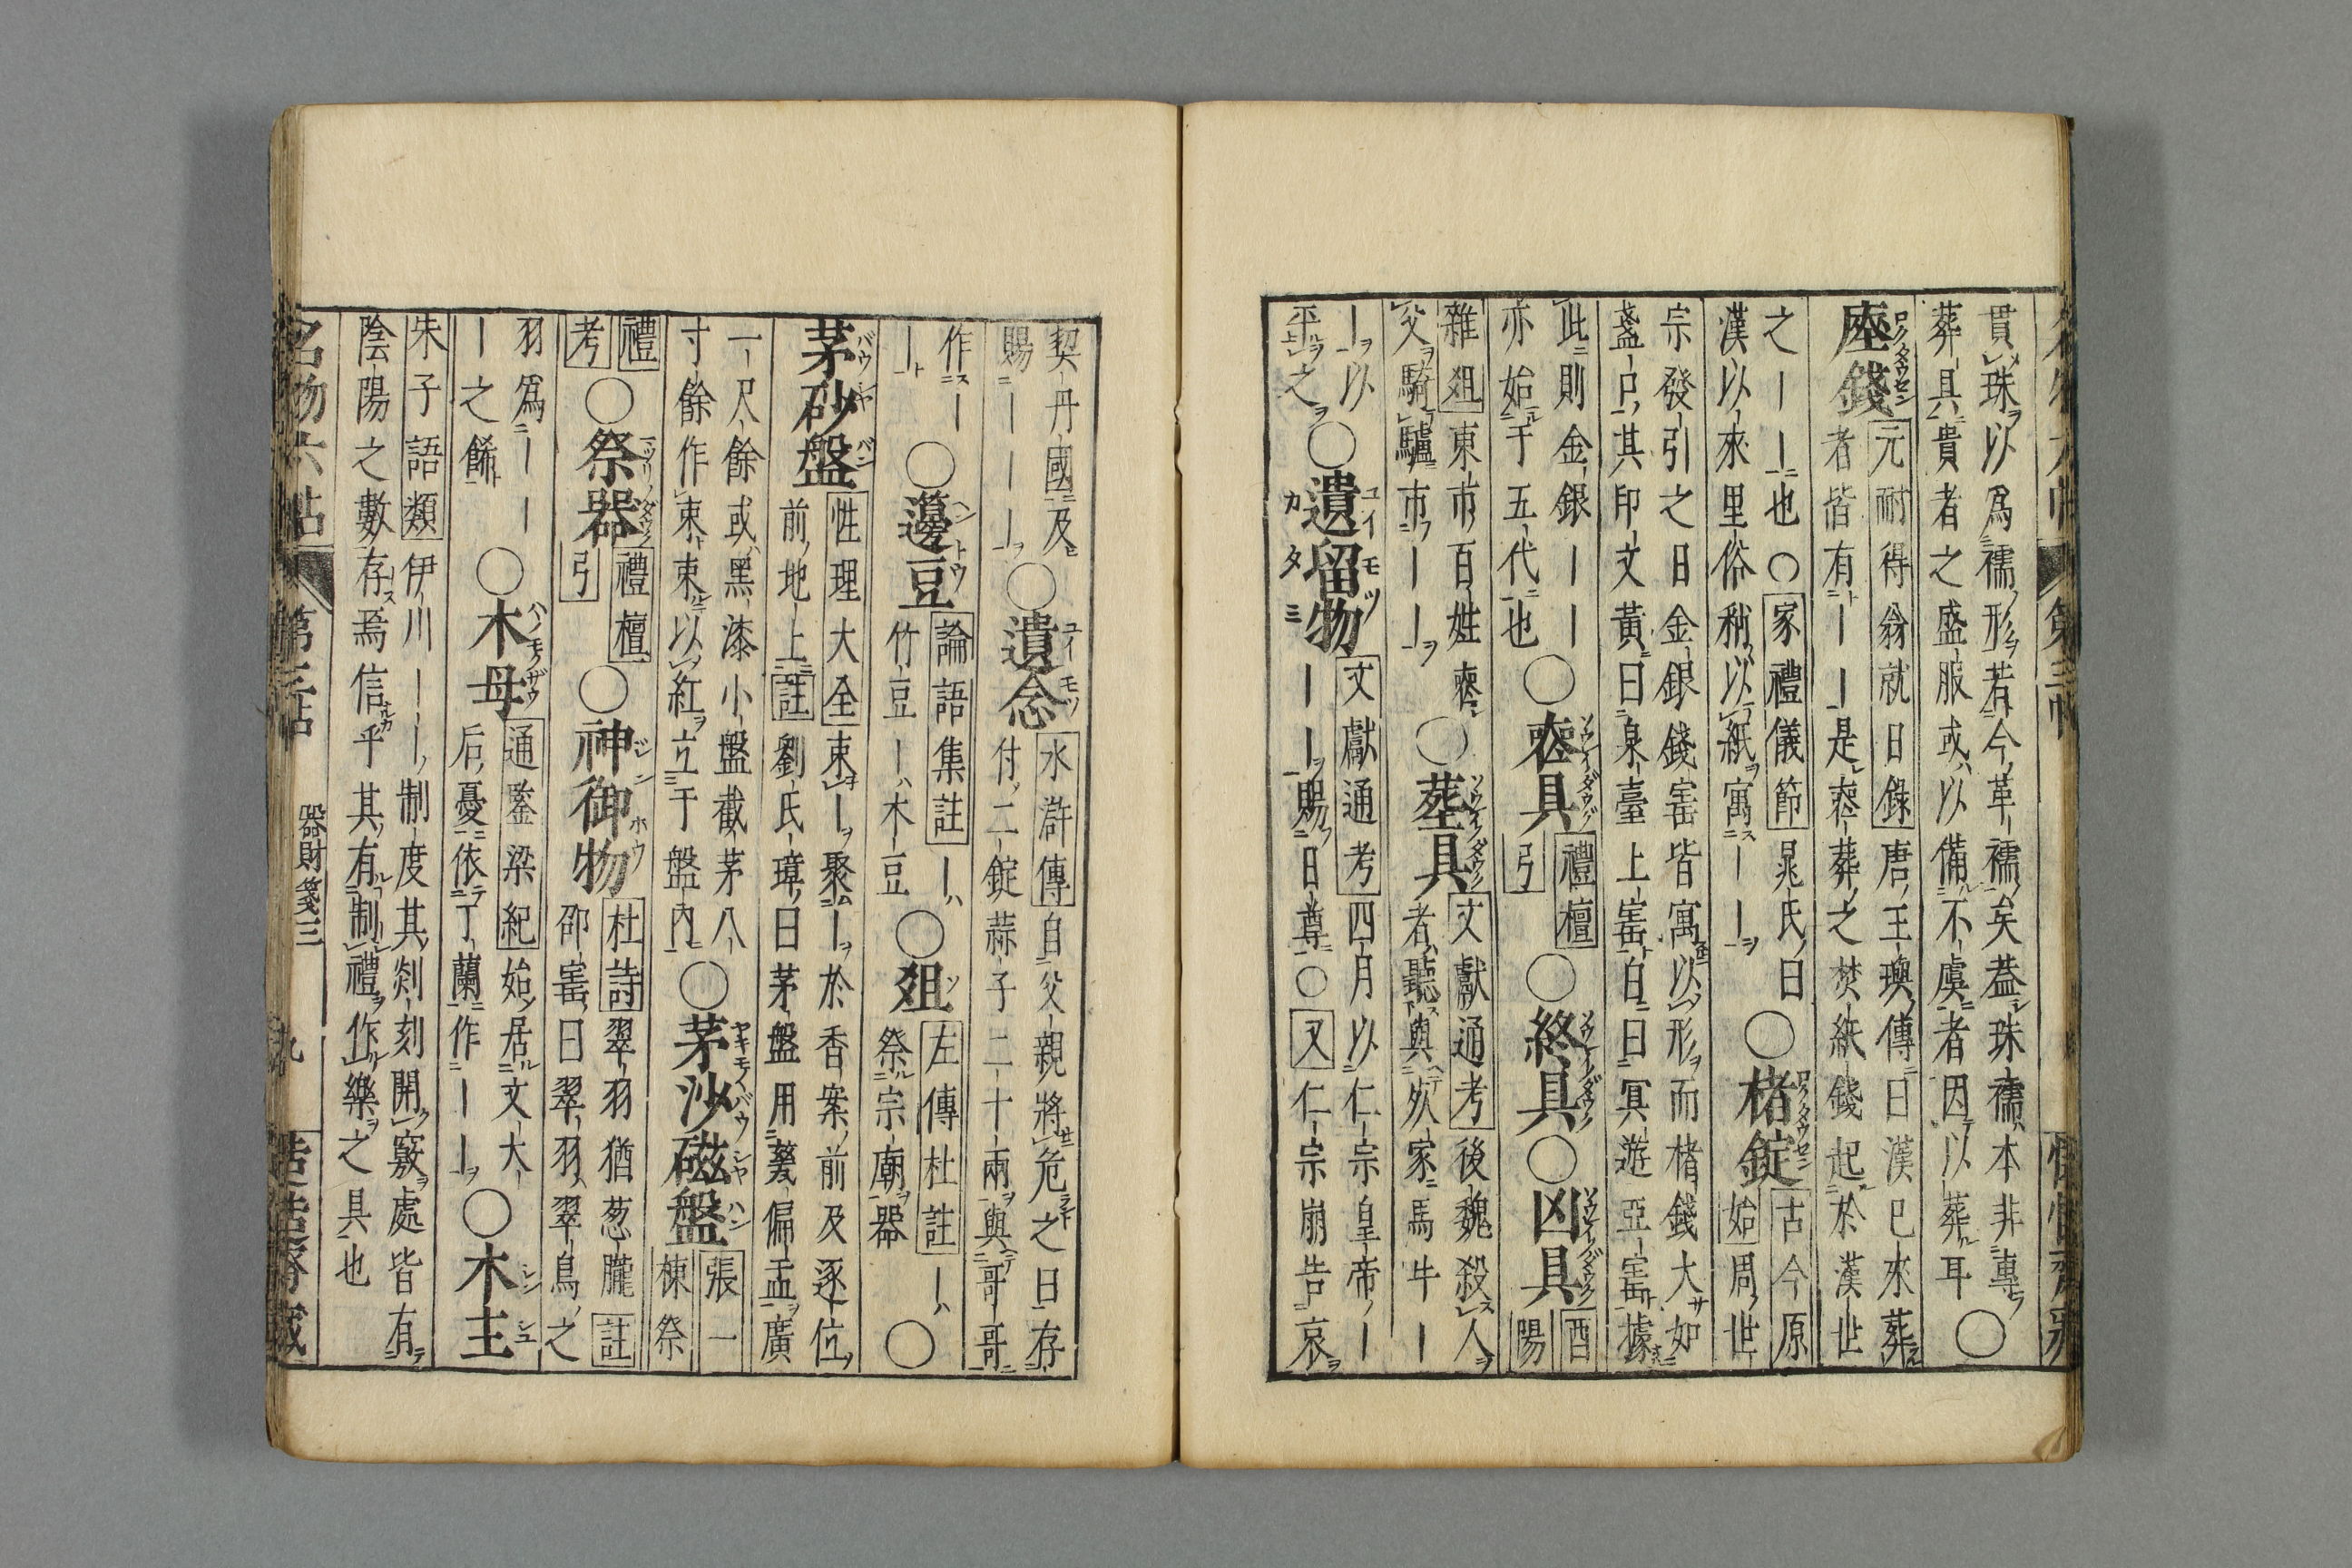 貫珠以爲襦形若今革襦矣葢珠襦本非專
葬具貴者之盛服或以備不虞者因以葬耳〇
瘞錢 元耐得翁就日錄 唐王璵傳曰漢已來葬
者皆有ーー是喪葬之焚紙錢起於漢世
之ーー也〇家禮儀節晁氏曰
漢以來里俗稍以紙寓ーー
〇楮錠 古今原始 周世
宗發引之日金銀錢寶皆寓以形而楮錢大如
盞口其印文黃曰泉臺上寶白曰冥遊亞寶據
此則金銀ーー
亦始于五代也
〇喪具 禮檀弓
〇終具〇凶具 酉陽
雜爼 東市百姓喪
父騎驢市ーー
〇葬具 文獻通考 後魏殺人
者聽與死家馬牛ー
ー以
平之
〇遺留物 文獻通考 四月以仁宗皇帝ー
ーー賜日尊〇又仁宗崩告哀
契丹國及
賜ーーー
〇遺念 水滸傳 自父親將危之日存
付二錠蒜子二十兩與哥哥
作ー
ー
〇籩豆 論語集註 ー
竹豆ー木豆
〇爼 左傳杜註 ー
祭宗廟器
〇
茅砂盤 性理大全 束ー聚ー於香案前及逐位
前地上註劉氏璋曰茅盤用甆偏盂廣
一尺餘或黑漆小盤截茅八
寸餘作束束以紅立于盤內
〇茅沙磁盤 張一棟祭
禮考
〇祭器 禮檀弓
〇神御物 杜詩 翠羽猶葱朧註
邵寶曰翠羽翠鳥之
羽爲ーー
ー之餙
〇木母 通鑒梁紀 始居文大
后憂依丁蘭作ーー
〇木主
朱子語類 伊川ーー制度其剡刻開竅處皆有
陰陽之數存焉信乎其有制禮作樂之具也
名物六帖 第三帖 器財箋三 九